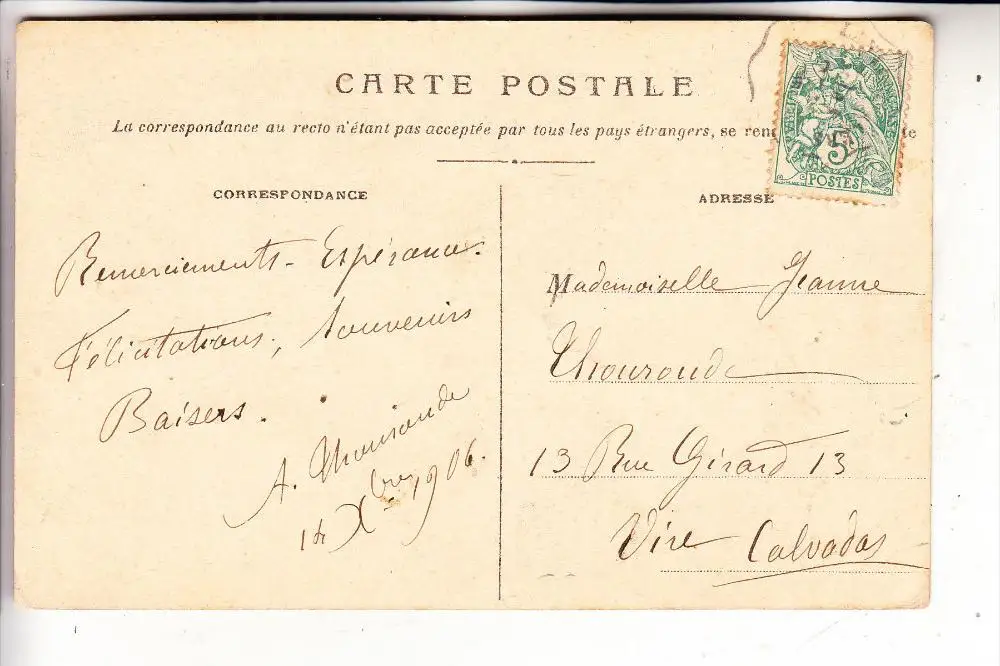 CARTE POSTALE
La correspondance au recto n'étant pas acceptée par tous les pays étrangers, se ren
te
5
POSTES
CORRESPONDANCE
ADRESSE
Remerciements - Espérance.
Félicitations, Souvenirs
Baisers.
A.
14 Xbre 1906.
Mademoiselle Jeanne
Thouroude
13 Rue Girard 13
Vire Calvados